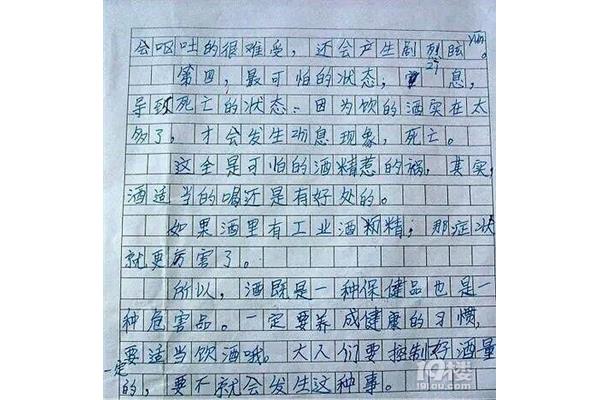 会呕吐的很难受，还会产生剧烈眩yùn。
第四，最可怕的状态，息，
导致死亡的状态：因为饮的酒实在太
多了，才会发生 息现象，死亡。
这全是可怕的酒精惹的祸，其实，
酒适当的喝还是有好处的。
如果酒里有工业酒精；那症状
就更厉害了。
所以，酒既是一种保健品也是一
种危害品。一定要养成健康的习惯，
要适当饮酒哦。大人们要控制好酒量
一定
的，要不就会发生这种事。
19楼
19lou.com